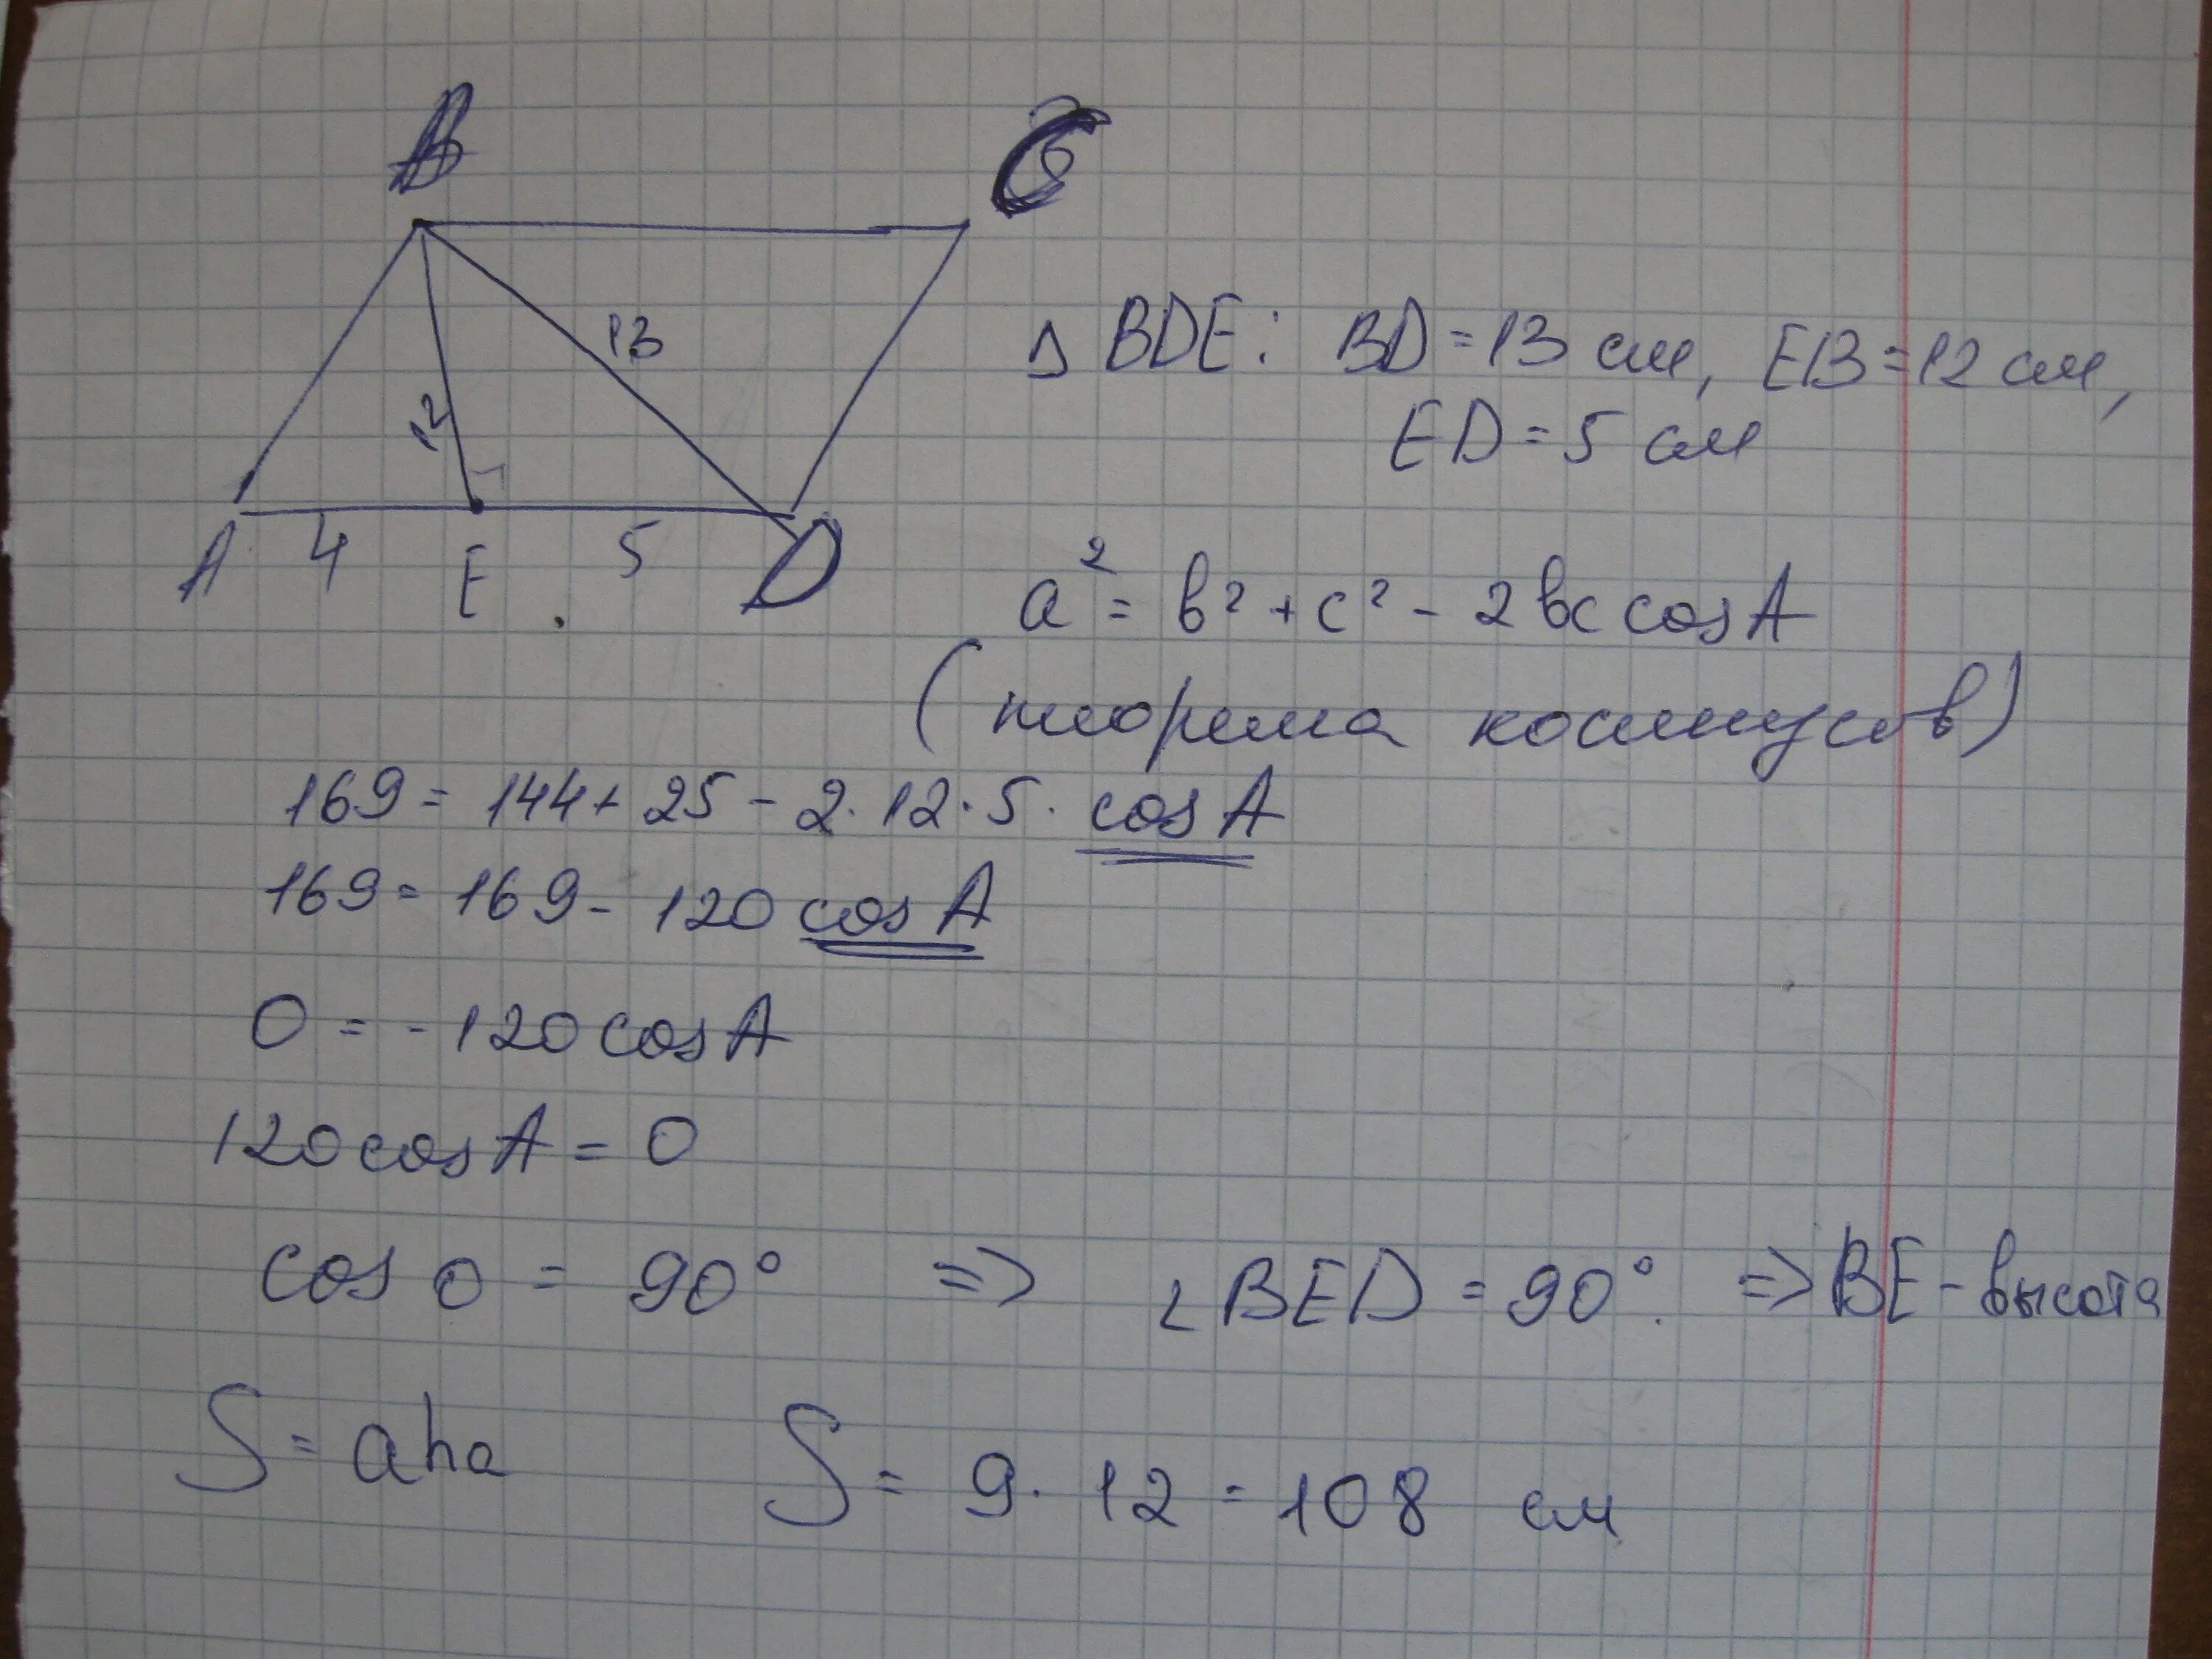 B C
13
12
A 4 E 5 D
Δ BDE: BD = 13 см, EB = 12 см,
ED = 5 см
a² = b² + c² - 2bc cosA
(теорема косинусов)
169 = 144 + 25 - 2·12·5· cosA
169 = 169 - 120 cosA
0 = -120cosA
120cosA = 0
cos 0 = 90° => ∠BED = 90°. => BE - высота
S = aha S = 9·12 = 108 см